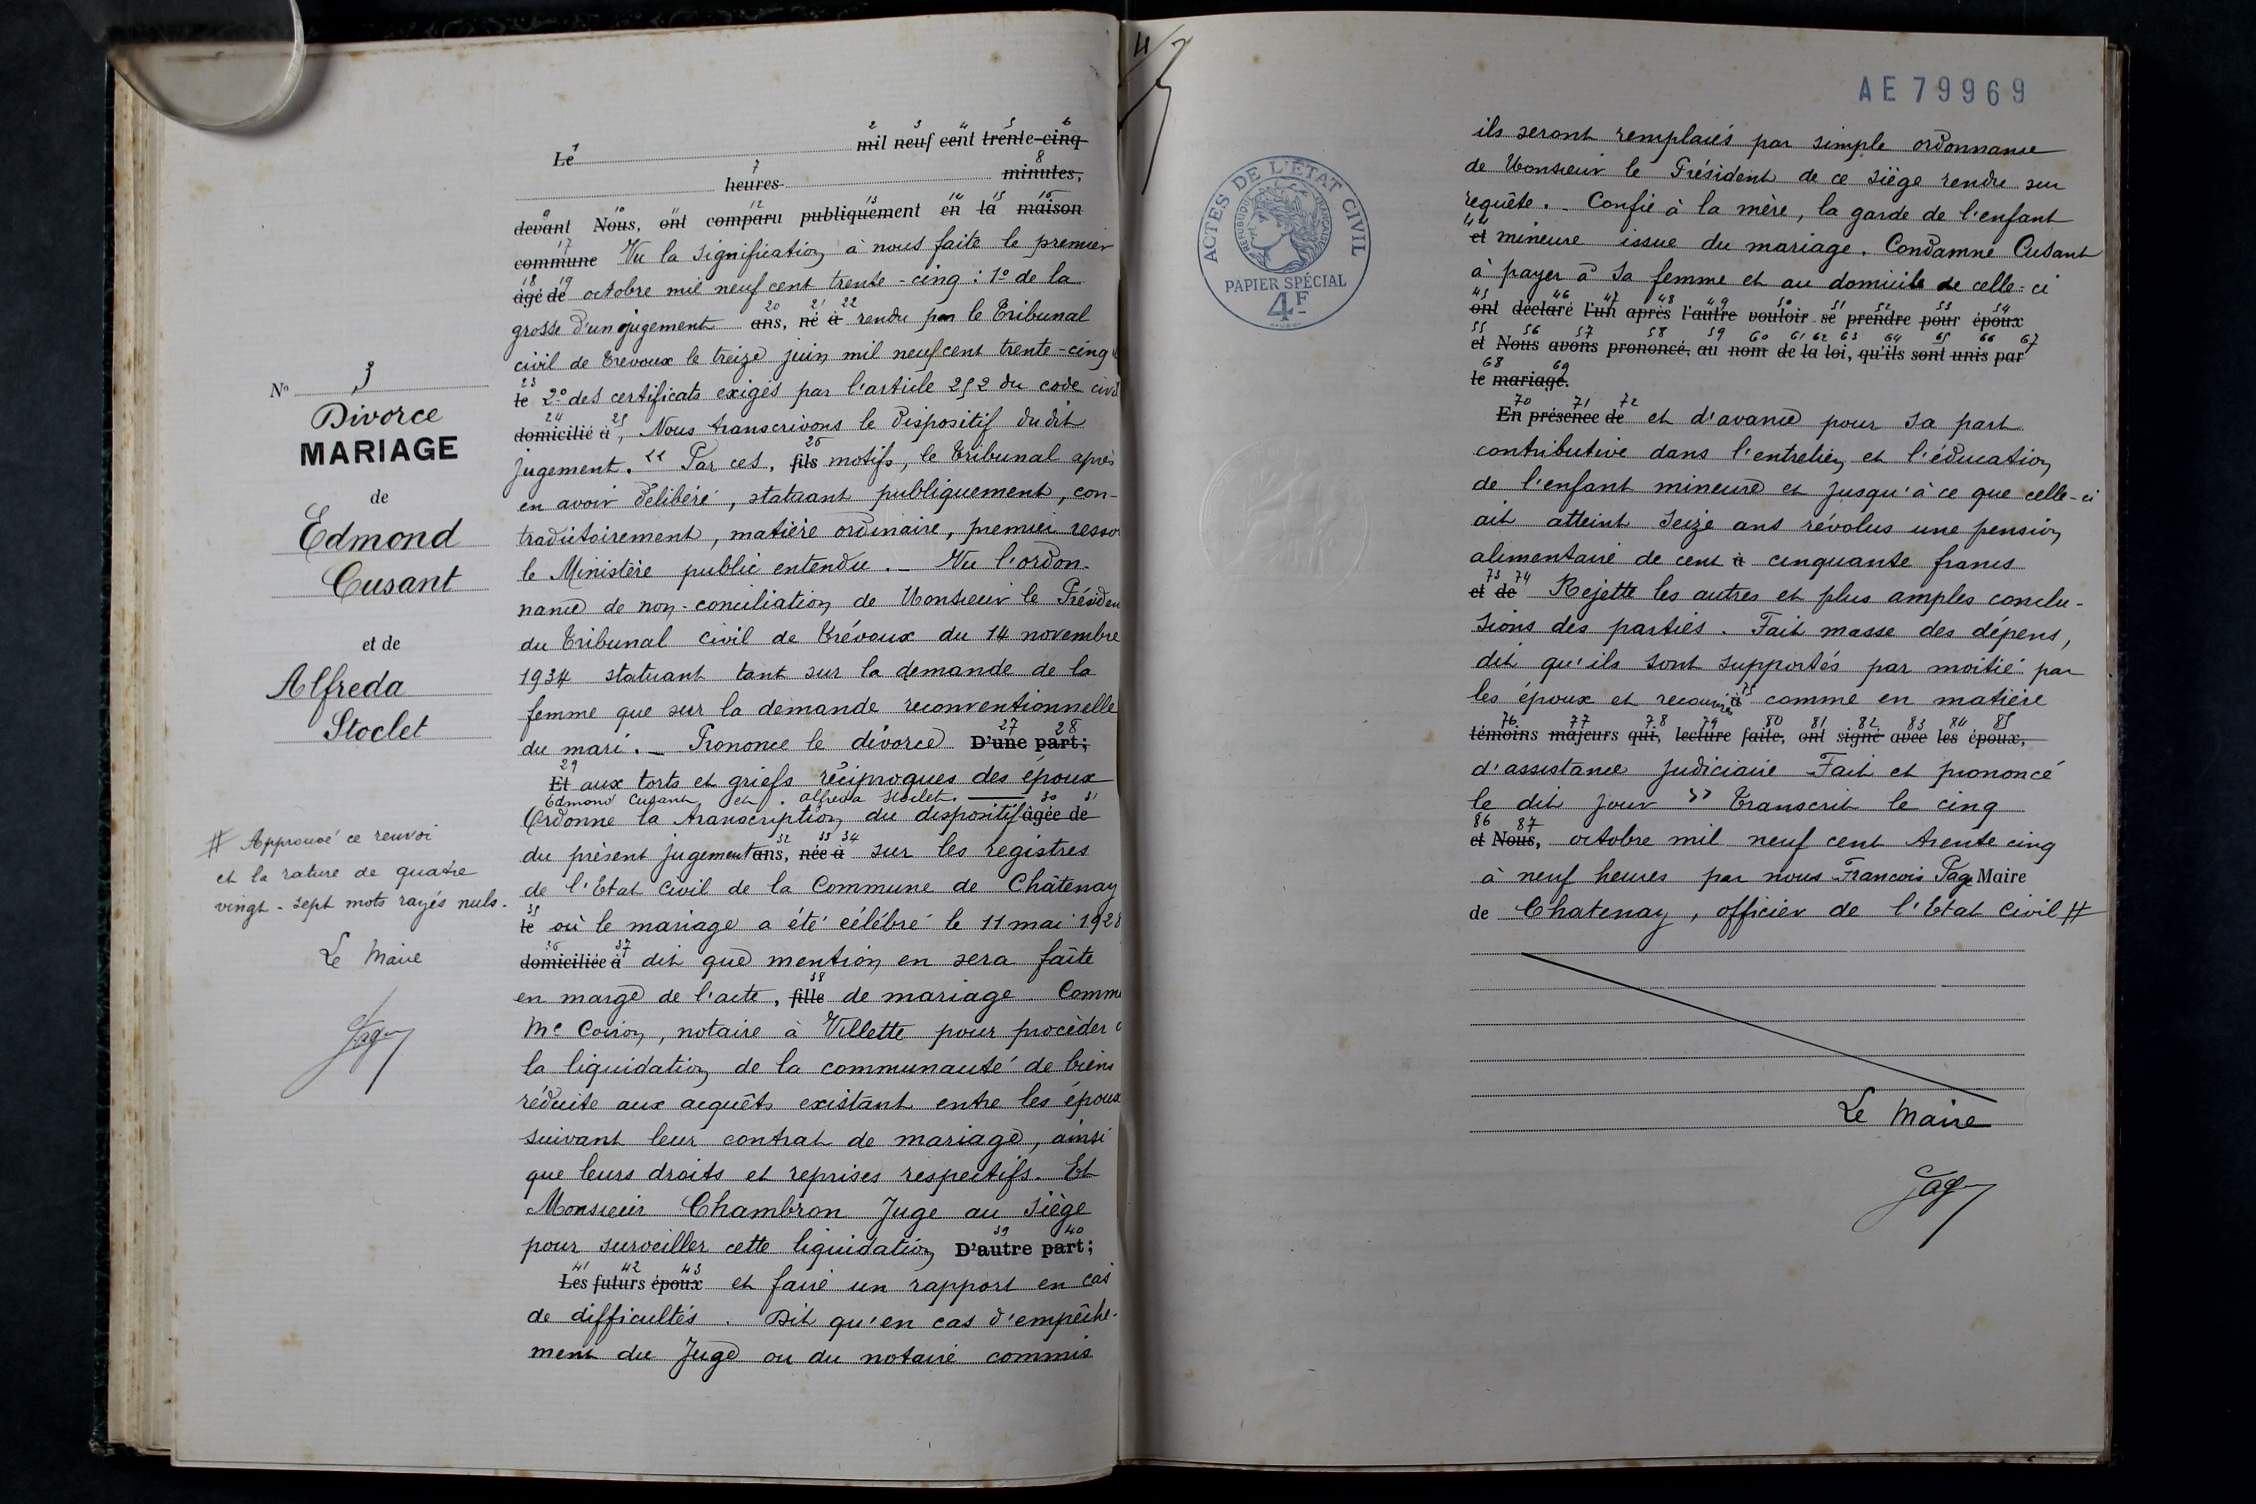 Le mil neuf cent trente-cinq
heures minutes,
devant Nous, ont comparu publiquement en la maison
commune Vu la signification à nous faite le premier
âgé de octobre mil neuf cent trente-cinq : 1º de la
grosse d'un jugement ans, né à rendu par le Tribunal
civil de Trévoux le treize juin mil neuf cent trente-cinq
le 2º des certificats exigés par l'article 252 du code civil
domicilié à, Nous transcrivons le dispositif dudit
jugement. "Par ces, fils motifs, le Tribunal après
en avoir délibéré, statuant publiquement, con-
tradictoirement, matière ordinaire, premier resso
le Ministère public entendu. _ Vu l'ordon-
nance de non-conciliation de Monsieur le Présiden
du Tribunal civil de Trévoux du 14 novembre
1934 statuant tant sur la demande de la
femme que sur la demande reconventionnelle
du mari. _ Prononce le divorce D'une part;
Et aux torts et griefs réciproques des époux
Edmond Cusant et Alfreda Stoclet.
Ordonne la transcription du dispositif âgée de
du présent jugement ans, née à sur les registres
de l'Etat civil de la Commune de Châtenay
le où le mariage a été célébré le 11 mai 1928
domiciliée à dit que mention en sera faite
en marge de l'acte, fille de mariage. Comm
Me Coiron, notaire à Villette pour procéder
la liquidation de la communauté de biens
réduite aux acquêts existant entre les époux
suivant leur contrat de mariage, ainsi
que leurs droits et reprises respectifs. Et
Monsieur Chambron Juge au Siège
pour surveiller cette liquidation D'autre part;
Les futurs époux et faire un rapport en cas
de difficultés. Dit qu'en cas d'empêche-
ment du Juge ou du notaire commis
Nº 3
Divorce
MARIAGE
de
Edmond
Cusant
et de
Alfreda
Stoclet
# Approuvé ce renvoi
et la rature de quatre
vingt-sept mots rayés nuls.
Le Maire
Page
AE79969
ACTES DE L'ÉTAT CIVIL
RÉPUBLIQUE FRANÇAISE
PAPIER SPÉCIAL
4F
ils seront remplacés par simple ordonnance
de Monsieur le Président de ce siège rendu sur
requête. _ Confie à la mère, la garde de l'enfant
et mineure issue du mariage. Condamne Cusant
à payer à sa femme et au domicile de celle-ci
ont déclaré l'un après l'autre vouloir se prendre pour époux
et Nous avons prononcé, au nom de la loi, qu'ils sont unis par
le mariage.
En présence de et d'avance pour sa part
contributive dans l'entretien et l'éducation
de l'enfant mineure et jusqu'à ce que celle-ci
ait atteint seize ans révolus une pension
alimentaire de cent à cinquante francs
et de Rejette les autres et plus amples conclu-
sions des parties. Fait masse des dépens,
dit qu'ils sont supportés par moitié par
les époux et recouvrés à comme en matière
témoins majeurs qui, lecture faite, ont signé avec les époux,
d'assistance judiciaire Fait et prononcé
le dit jour" Transcrit le cinq
et Nous, octobre mil neuf cent trente cinq
à neuf heures par nous Francois Page Maire
de Chatenay, officier de l'Etat civil #
Le Maire
Page